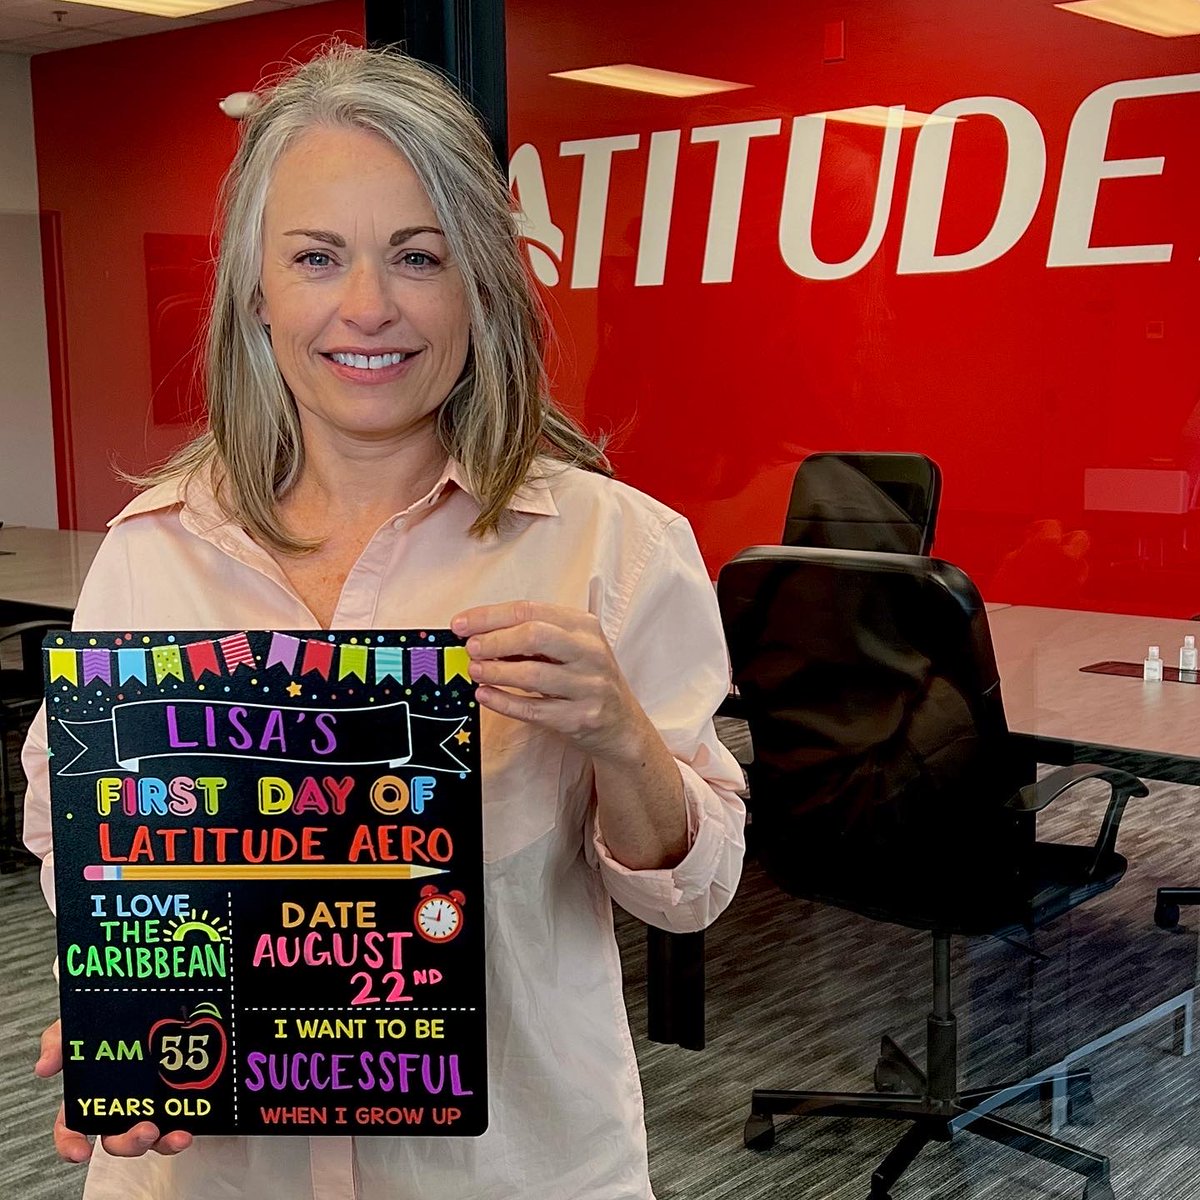 LATITUDE
LISA'S
FIRST DAY OF
LATITUDE AERO
I LOVE
THE
CARIBBEAN
DATE
AUGUST
22ND
I AM 55
YEARS OLD
I WANT TO BE
SUCCESSFUL
WHEN I GROW UP